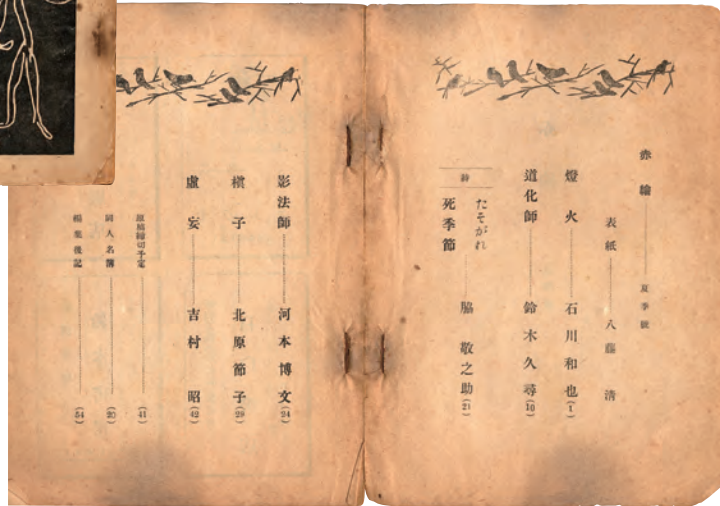 赤繪 夏季號
表紙 八藤清
燈火 石川和也(1)
道化師 鈴木久尋(10)
詩
たそがれ
死季節 脇敬之助(21)
影法師 河本博文(24)
槇子 北原節子(29)
虛妄 吉村昭(42)
原稿締切予定 (41)
同人名簿 (20)
編集後記 (54)